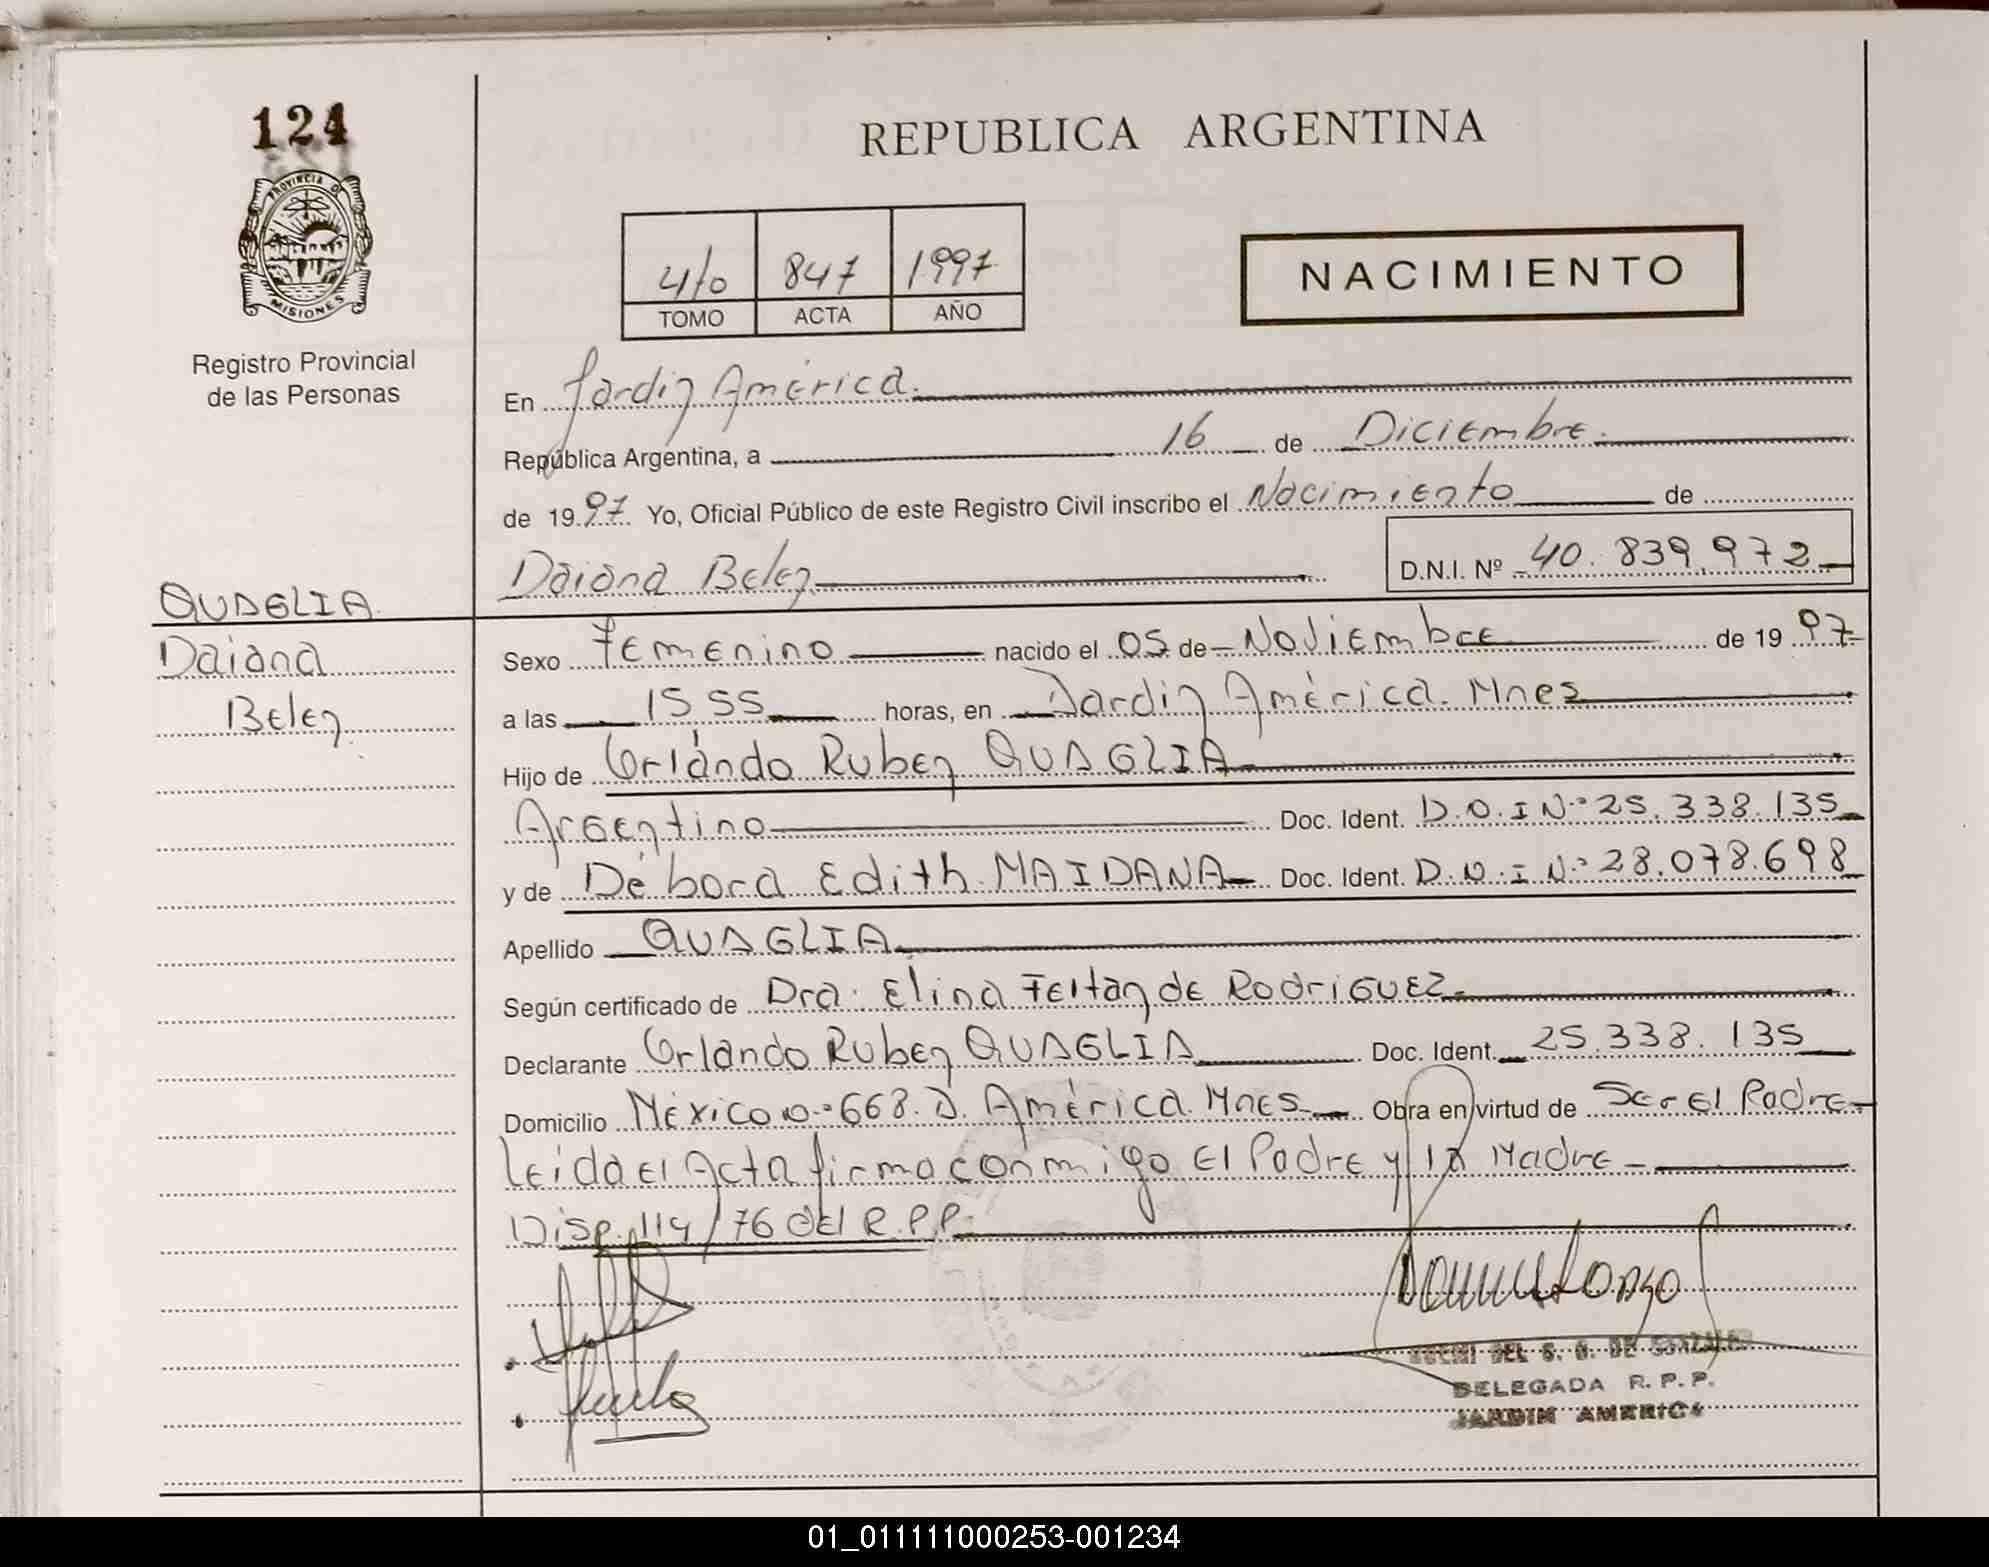 124
PROVINCIA DE
MISIONES
Registro Provincial
de las Personas
QUAGLIA
Daiana
Belen
REPUBLICA ARGENTINA
4/0 847 1997
TOMO ACTA AÑO
NACIMIENTO
En Jardin América.
República Argentina, a 16 de Diciembre.
de 1997. Yo, Oficial Público de este Registro Civil inscribo el Nacimiento de
Daiana Belen D.N.I. Nº 40.839.972
Sexo Femenino nacido el 05 de Noviembre de 1997
a las 15 55 horas, en Jardin América. Mnes
Hijo de Orlando Ruben QUAGLIA
Argentino Doc. Ident. D.N.I Nº 25.338.135
y de Débora Edith MAIDANA Doc. Ident. D.N.I Nº 28.078.698
Apellido QUAGLIA
Según certificado de Dra. Elina de RodriGUEZ
Declarante Orlando Ruben QUAGLIA Doc. Ident. 25.338.135
Domicilio México nº 668. J. América. Mnes Obra en virtud de Ser El Padre
Leida El Acta firma conmigo El Padre y la Madre
Disp. 114/76 del R.P.P.
DEL S. G. DE GONZALEZ
DELEGADA R.P.P.
JARDIN AMERICA
01_011111000253-001234